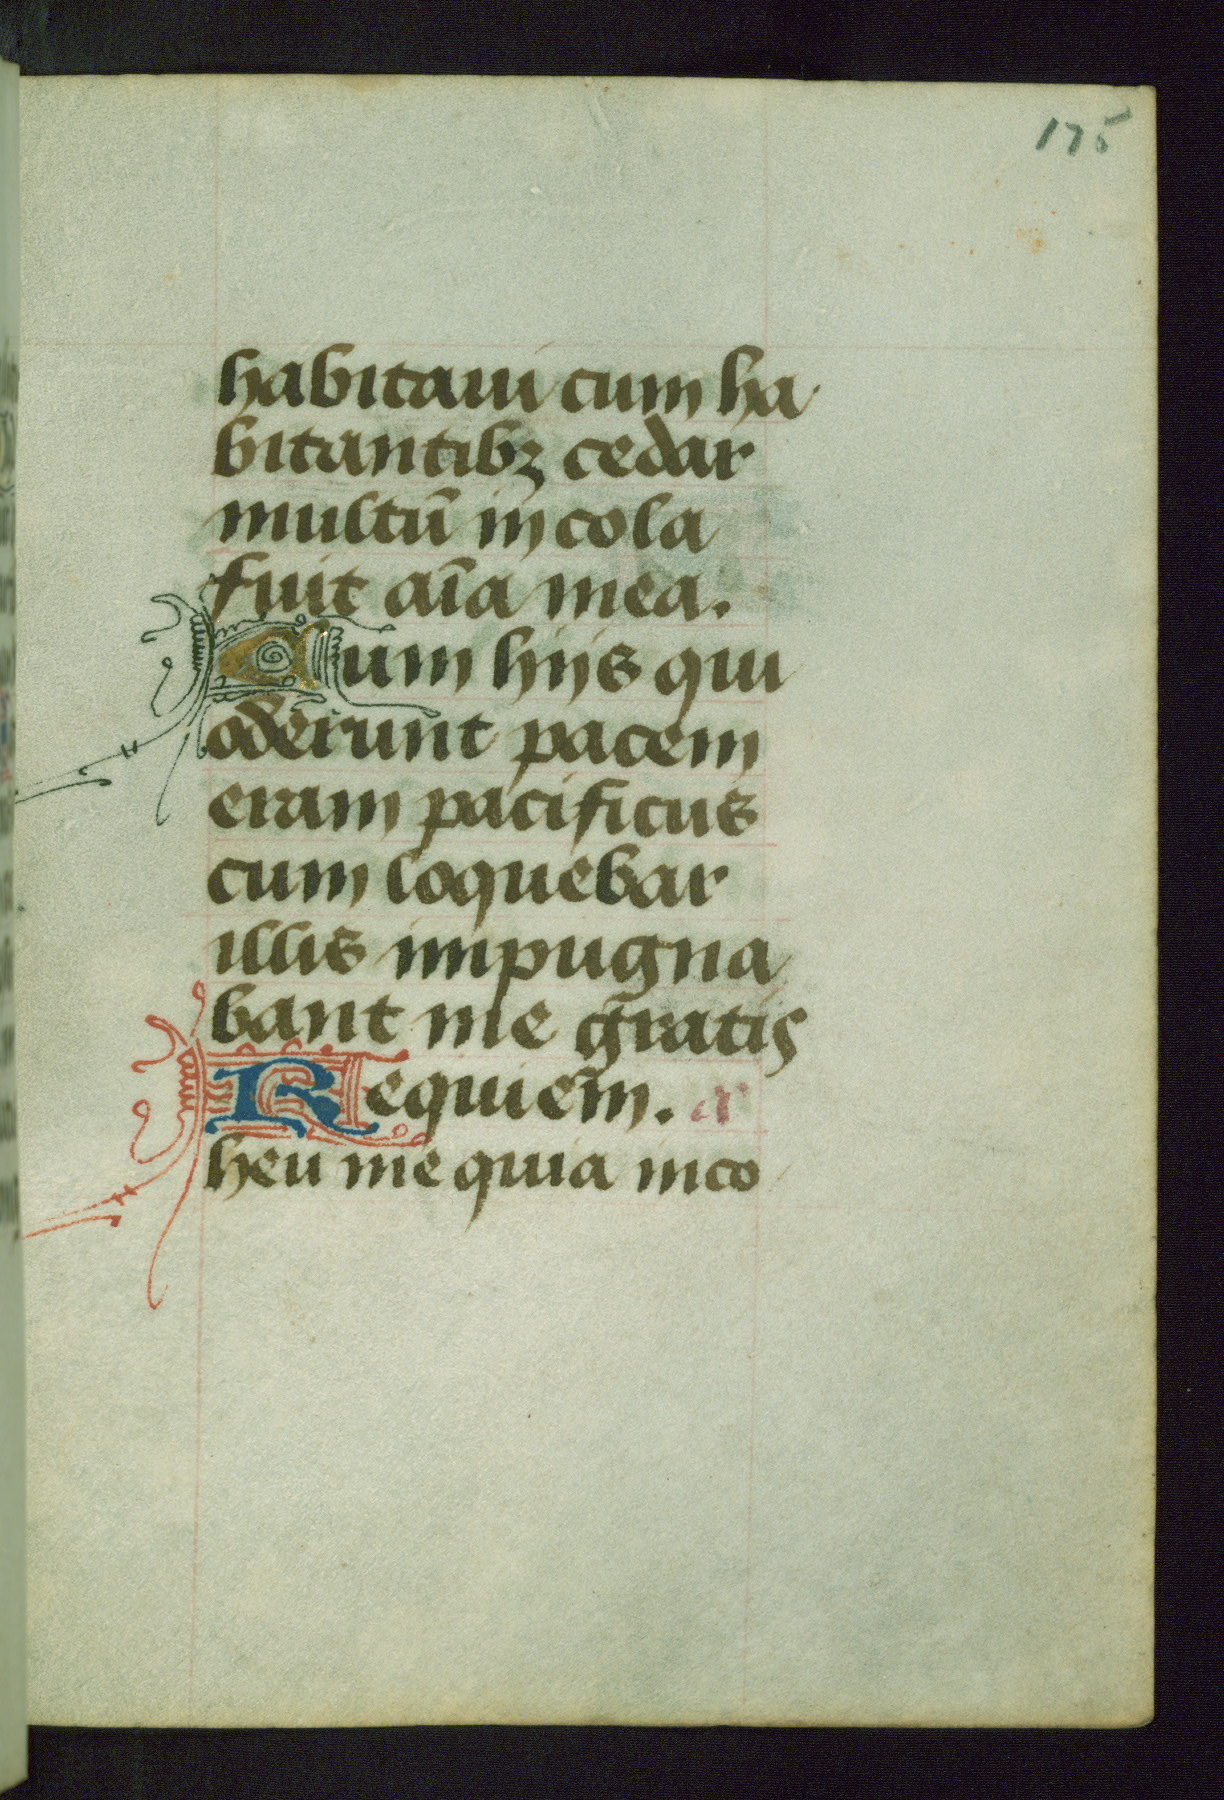 175
habitaui cum ha
bitantibꝫ cedar
multū incola
fuit aīa mea.
Cum hijs qui
oderunt pacem
eram pacificus
cum loquebar
illis impugna
bant me gratis
Requiem. añ
heu me quia inco